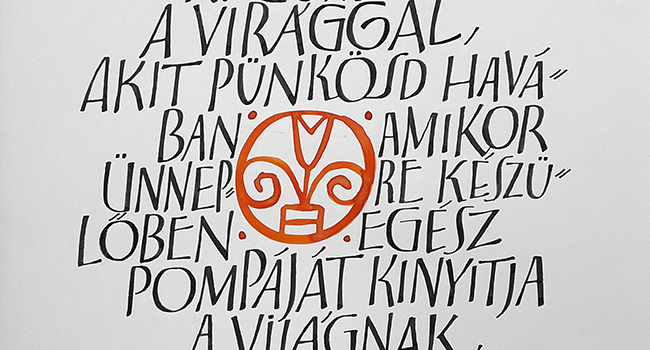 A VIRÁGGAL,
AKIT PÜNKÖSD HAVÁ=
BAN AMIKOR
ÜNNEP= RE KÉSZÜ=
LŐBEN EGÉSZ
POMPÁJÁT KINYITJA
A VILÁGNAK,